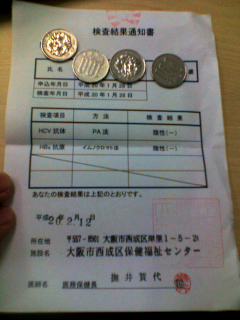 検査結果通知書
氏名
申込年月日 平成20年1月28日
検査年月日 平成20年1月28日
項目 方法 検査結果
HCV抗体 PA法 陰性(-)
HBs抗原 イムノクロマト法 陰性(-)
あなたの検査結果は上記のとおりです。
平成20年2月12日
所在地 〒557-8501 大阪市西成区岸里1-5-20
施設名 大阪市西成区保健福祉センター
医師名 医務保健長 撫井賀代